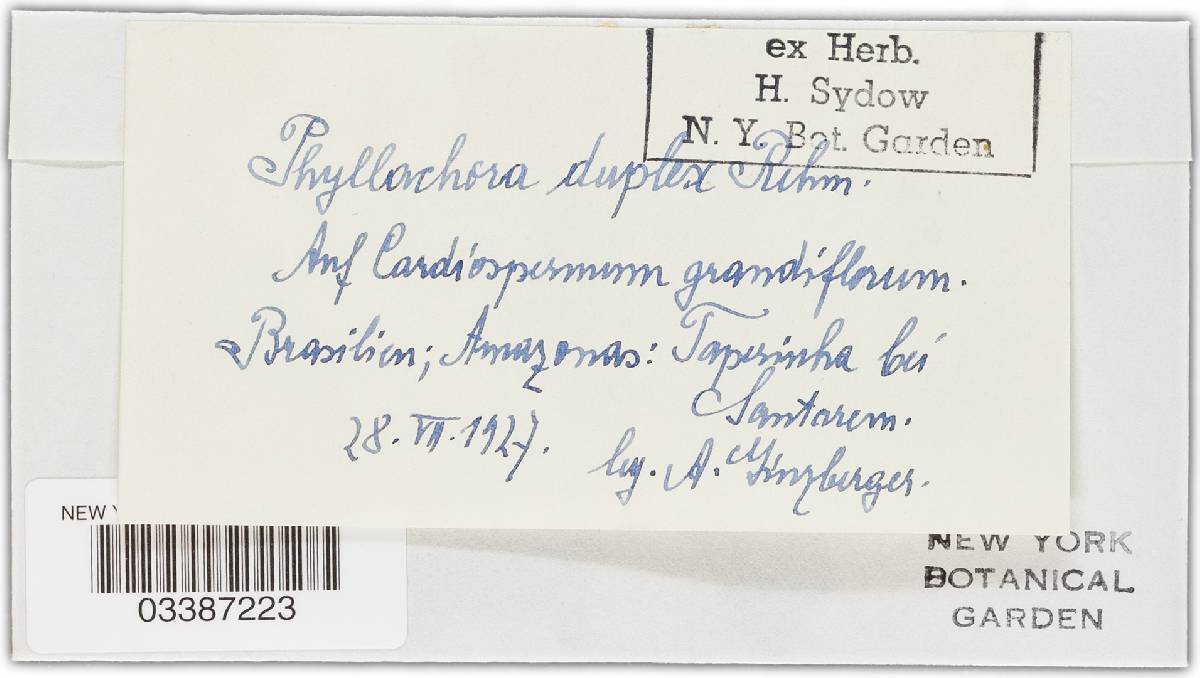 ex Herb.
H. Sydow
N. Y. Bot. Garden
Phyllachora duplex Rehm.
Auf Cardiospermum grandiflorum.
Brasilien; Amazonas: Taperinha bei
Santarem.
28. VII. 1927.
leg. A. Ginzberger.
NEW Y
03387223
NEW YORK
BOTANICAL
GARDEN